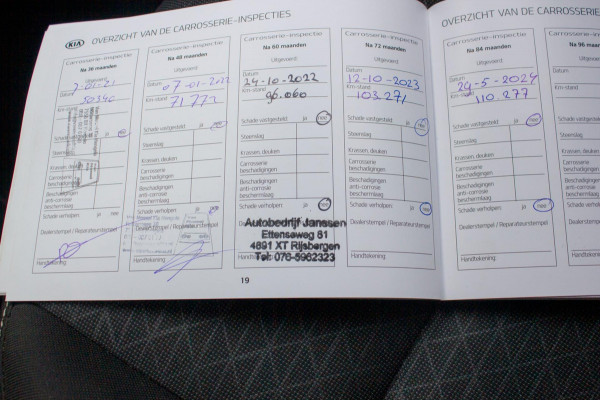 KIA OVERZICHT VAN DE CARROSSERIE-INSPECTIES
Carrosserie-inspectie
Na 36 maanden
Uitgevoerd:
Datum
Km-stand
50340
Schade vastgesteld: ja nee
Steenslag
Krassen, deuken
Carrosserie
beschadigingen
Beschadigingen
anti-corrosie
beschermlaag
Schade verholpen: ja nee
Dealerstempel / Reparateurstempel
Handtekening
Carrosserie-inspectie
Na 48 maanden
Uitgevoerd:
Datum
07-01-2022
Km-stand
71777
Schade vastgesteld: ja nee
Steenslag
Krassen, deuken
Carrosserie
beschadigingen
Beschadigingen
anti-corrosie
beschermlaag
Schade verholpen: ja
Dealerstempel / Reparateurstempel
Handtekening
Carrosserie-inspectie
Na 60 maanden
Uitgevoerd:
Datum
24-10-2022
Km-stand
96.060
Schade vastgesteld: ja nee
Steenslag
Krassen, deuken
Carrosserie
beschadigingen
Beschadigingen
anti-corrosie
beschermlaag
Schade verholpen: ja nee
Autobedrijf Janssen
Ettenseweg 81
4891 XT Rijsbergen
Tel: 076-5962323
Handtekening
Carrosserie-inspectie
Na 72 maanden
Uitgevoerd:
Datum
12-10-2023
Km-stand
103.271
Schade vastgesteld: ja nee
Steenslag
Krassen, deuken
Carrosserie
beschadigingen
Beschadigingen
anti-corrosie
beschermlaag
Schade verholpen: ja nee
Dealerstempel / Reparateurstempel
Handtekening
19
OVERZICHT VAN DE CARROSSERIE
Carrosserie-inspectie
Na 84 maanden
Uitgevoerd:
Datum
29-5-2024
Km-stand
110.277
Schade vastgesteld: ja nee
Steenslag
Krassen, deuken
Carrosserie
beschadigingen
Beschadigingen
anti-corrosie
beschermlaag
Schade verholpen: ja nee
Dealerstempel / Reparateurstempel
Handtekening
Carrosserie-
Na 96 maan
Uitgevoerd
Datum
Km-stand
Schade vastgesteld:
Steenslag
Krassen, deuken
Carrosserie
beschadigingen
Beschadigingen
anti-corrosie
beschermlaag
Schade verholpen:
Handtekening